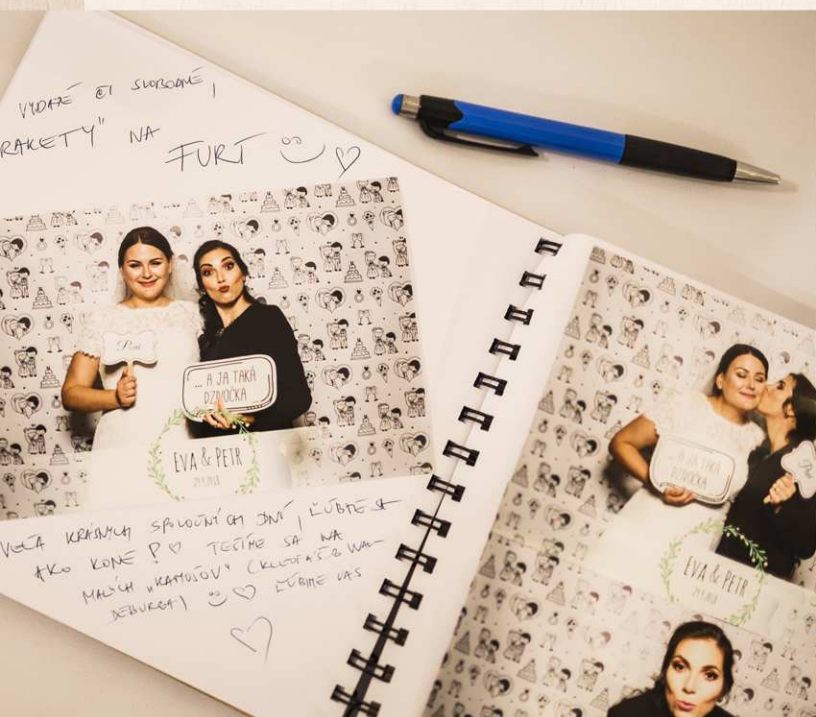 VYDATÉ ČI SLOBODNÉ,
RAKETY" NA
FURT
Pení
... A JA TAKÁ
DZIVOČKA
EVA & PETR
VEĽA KRÁSNYCH SPOLOČNÝCH DNÍ, ĽÚBTE SA
AKO KONE! TEŠÍME SA NA
MALÝCH „KAMOŠOV"
ĽÚBIME VÁS
... A JA TAKÁ
DZIVOČKA
EVA & PETR